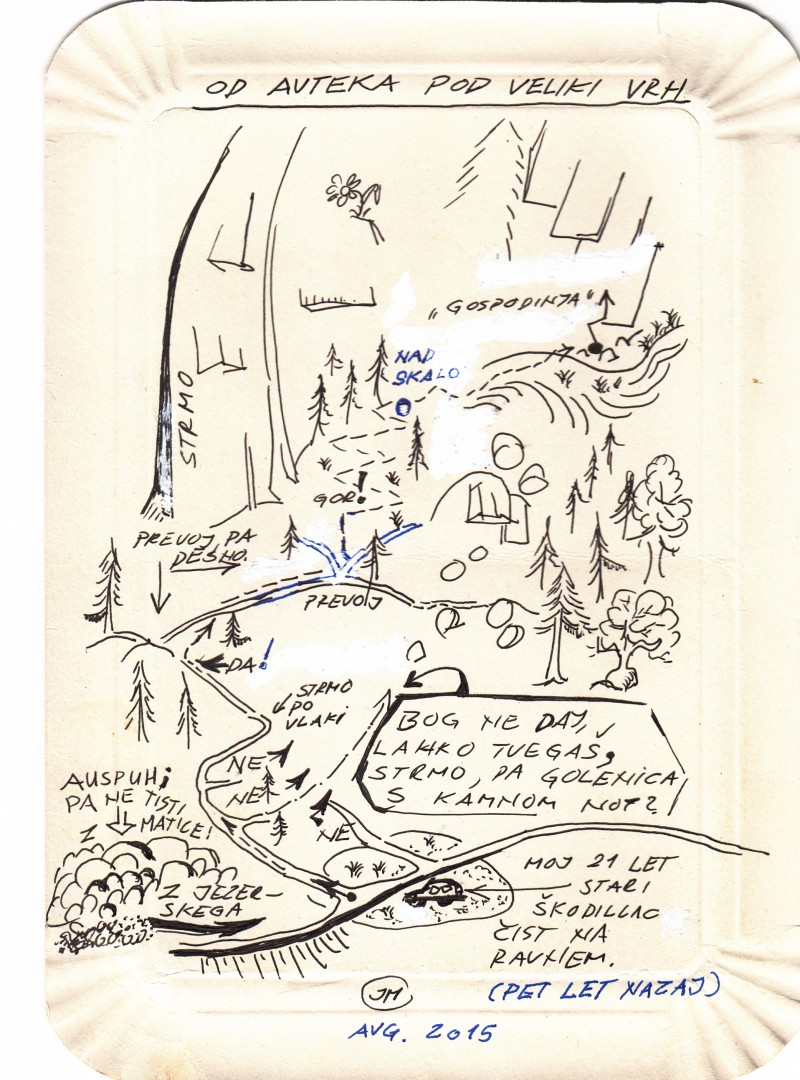 OD AVTEKA POD VELIKI VRH
"GOSPODINJA"
NAD
SKALO
STRMO
GOR!
PREVOJ, PA
DESNO.
PREVOJ
DA!
STRMO
PO
VLAKI
BOG NE DAJ,
LAHKO TVEGAŠ,
STRMO, PA GOLENICA
S KAMNOM NOT?
NE
NE
NE
AUSPUHI,
PA NE TISTI,
Z MATICE!
Z JEZER-
SKEGA
MOJ 21 LET
STARI
ŠKODILLAC
ČIST NA
RAVNEM.
(PET LET NAZAJ)
JM
AVG. 2015